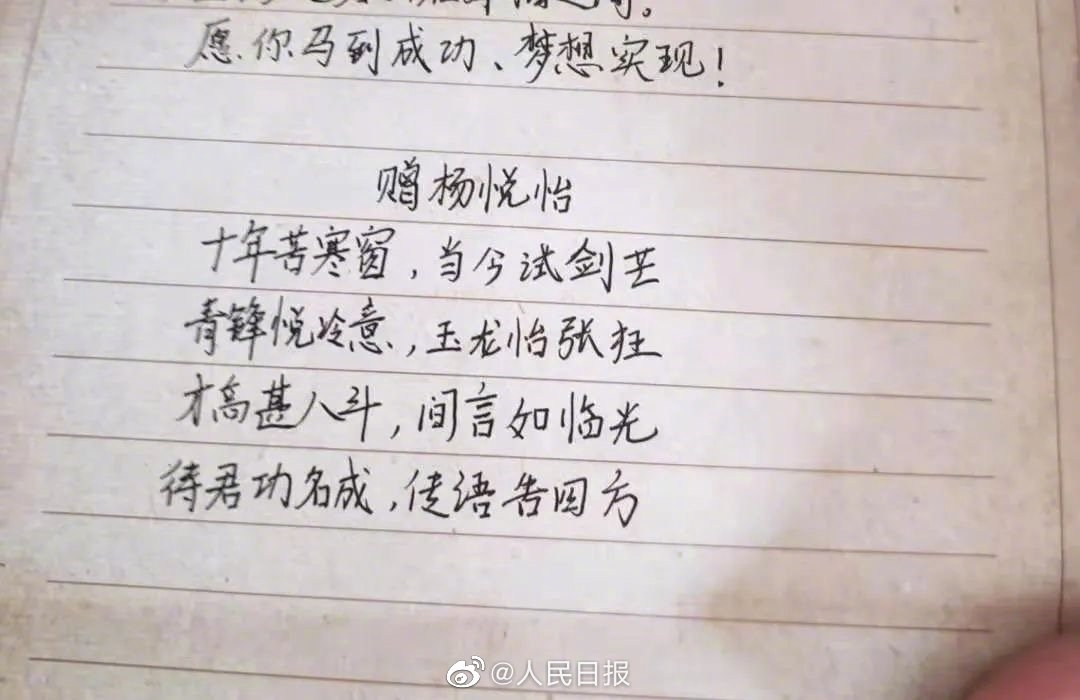 愿你马到成功、梦想实现!
赠杨悦怡
十年苦寒窗,当今试剑芒
青锋悦冷意,玉龙怡张狂
才高甚八斗,间言如临光
待君功名成,传语告四方
@人民日报